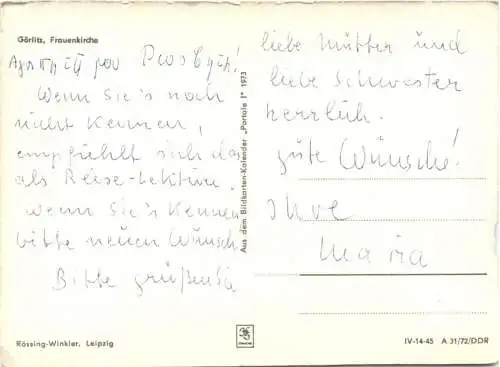 Görlitz, Frauenkirche
Wenn Sie's noch
nicht kennen,
empfiehlt sich das
als Reise-Lektüre.
Wenn Sie's kennen
bitte neuen Wunsch
Bitte grüßen Sie
Aus dem Bildkarten-Kalender „Portale I" 1973
liebe Mutter und
liebe Schwester
herrlich.
gute Wünsche!
Ihre
Maria
Rössing-Winkler, Leipzig
IV-14-45 A 31/72/DDR